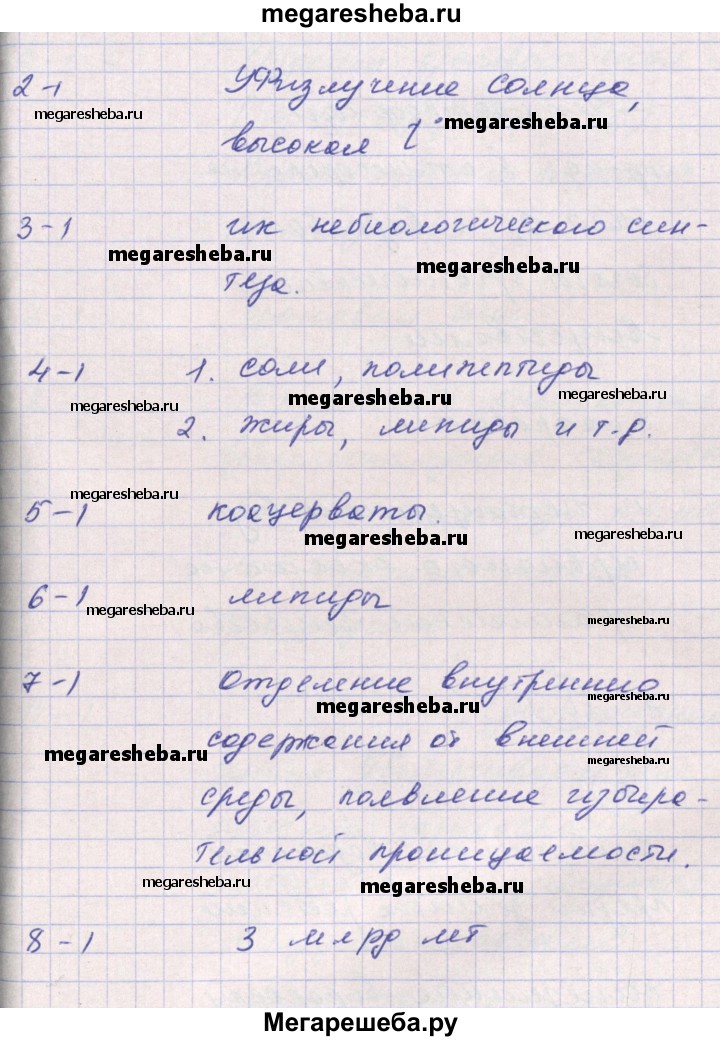 megaresheba.ru
2-1 УФ излучение солнца,
megaresheba.ru
megaresheba.ru
высокая t°
3-1 их небиологического син-
megaresheba.ru
megaresheba.ru
теза.
4-1 1. соли, полипептиды
megaresheba.ru
megaresheba.ru
megaresheba.ru
2. Жиры, липиды и т.д.
megaresheba.ru
5-1 коацерваты.
megaresheba.ru
megaresheba.ru
6-1 липиды
megaresheba.ru
megaresheba.ru
7-1 Отделение внутреннего
megaresheba.ru
megaresheba.ru
содержания от внешней
megaresheba.ru
megaresheba.ru
среды, появление избира-
тельной проницаемости.
megaresheba.ru
megaresheba.ru
8-1 3 млрд лет
Мегарешеба.ру